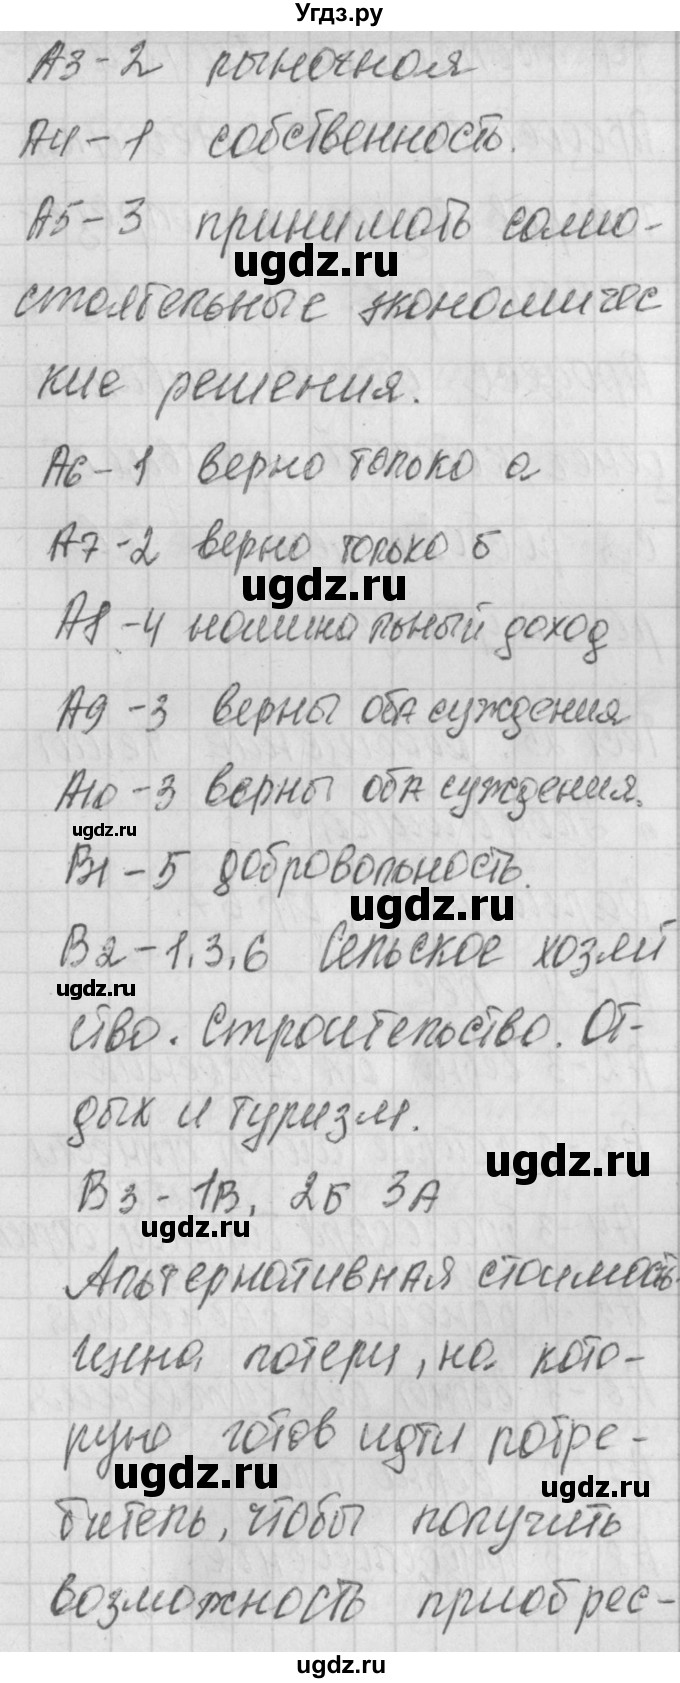 Угдз.ру
А3-2 рыночная
А4-1 собственность.
А5-3 принимать само-
ugdz.ru
стоятельные экономичес
кие решения.
А6-1 верно только а
А7-2 верно только б
ugdz.ru
А8-4 номинальный доход
А9-3 верны оба суждения
А10-3 верны оба суждения.
ugdz.ru
В1-5 добровольность.
ugdz.ru
В2-1,3,6 Сельское хозяй
ugdz.ru
ство. Строительство. От-
дых и туризм.
ugdz.ru
В3-1В, 2Б 3А
ugdz.ru
Альтернативная стоимость
цена потери, на кото-
рую готов идти потре-
ugdz.ru
ugdz.ru
битель, чтобы получить
возможность приобрес-
ugdz.ru